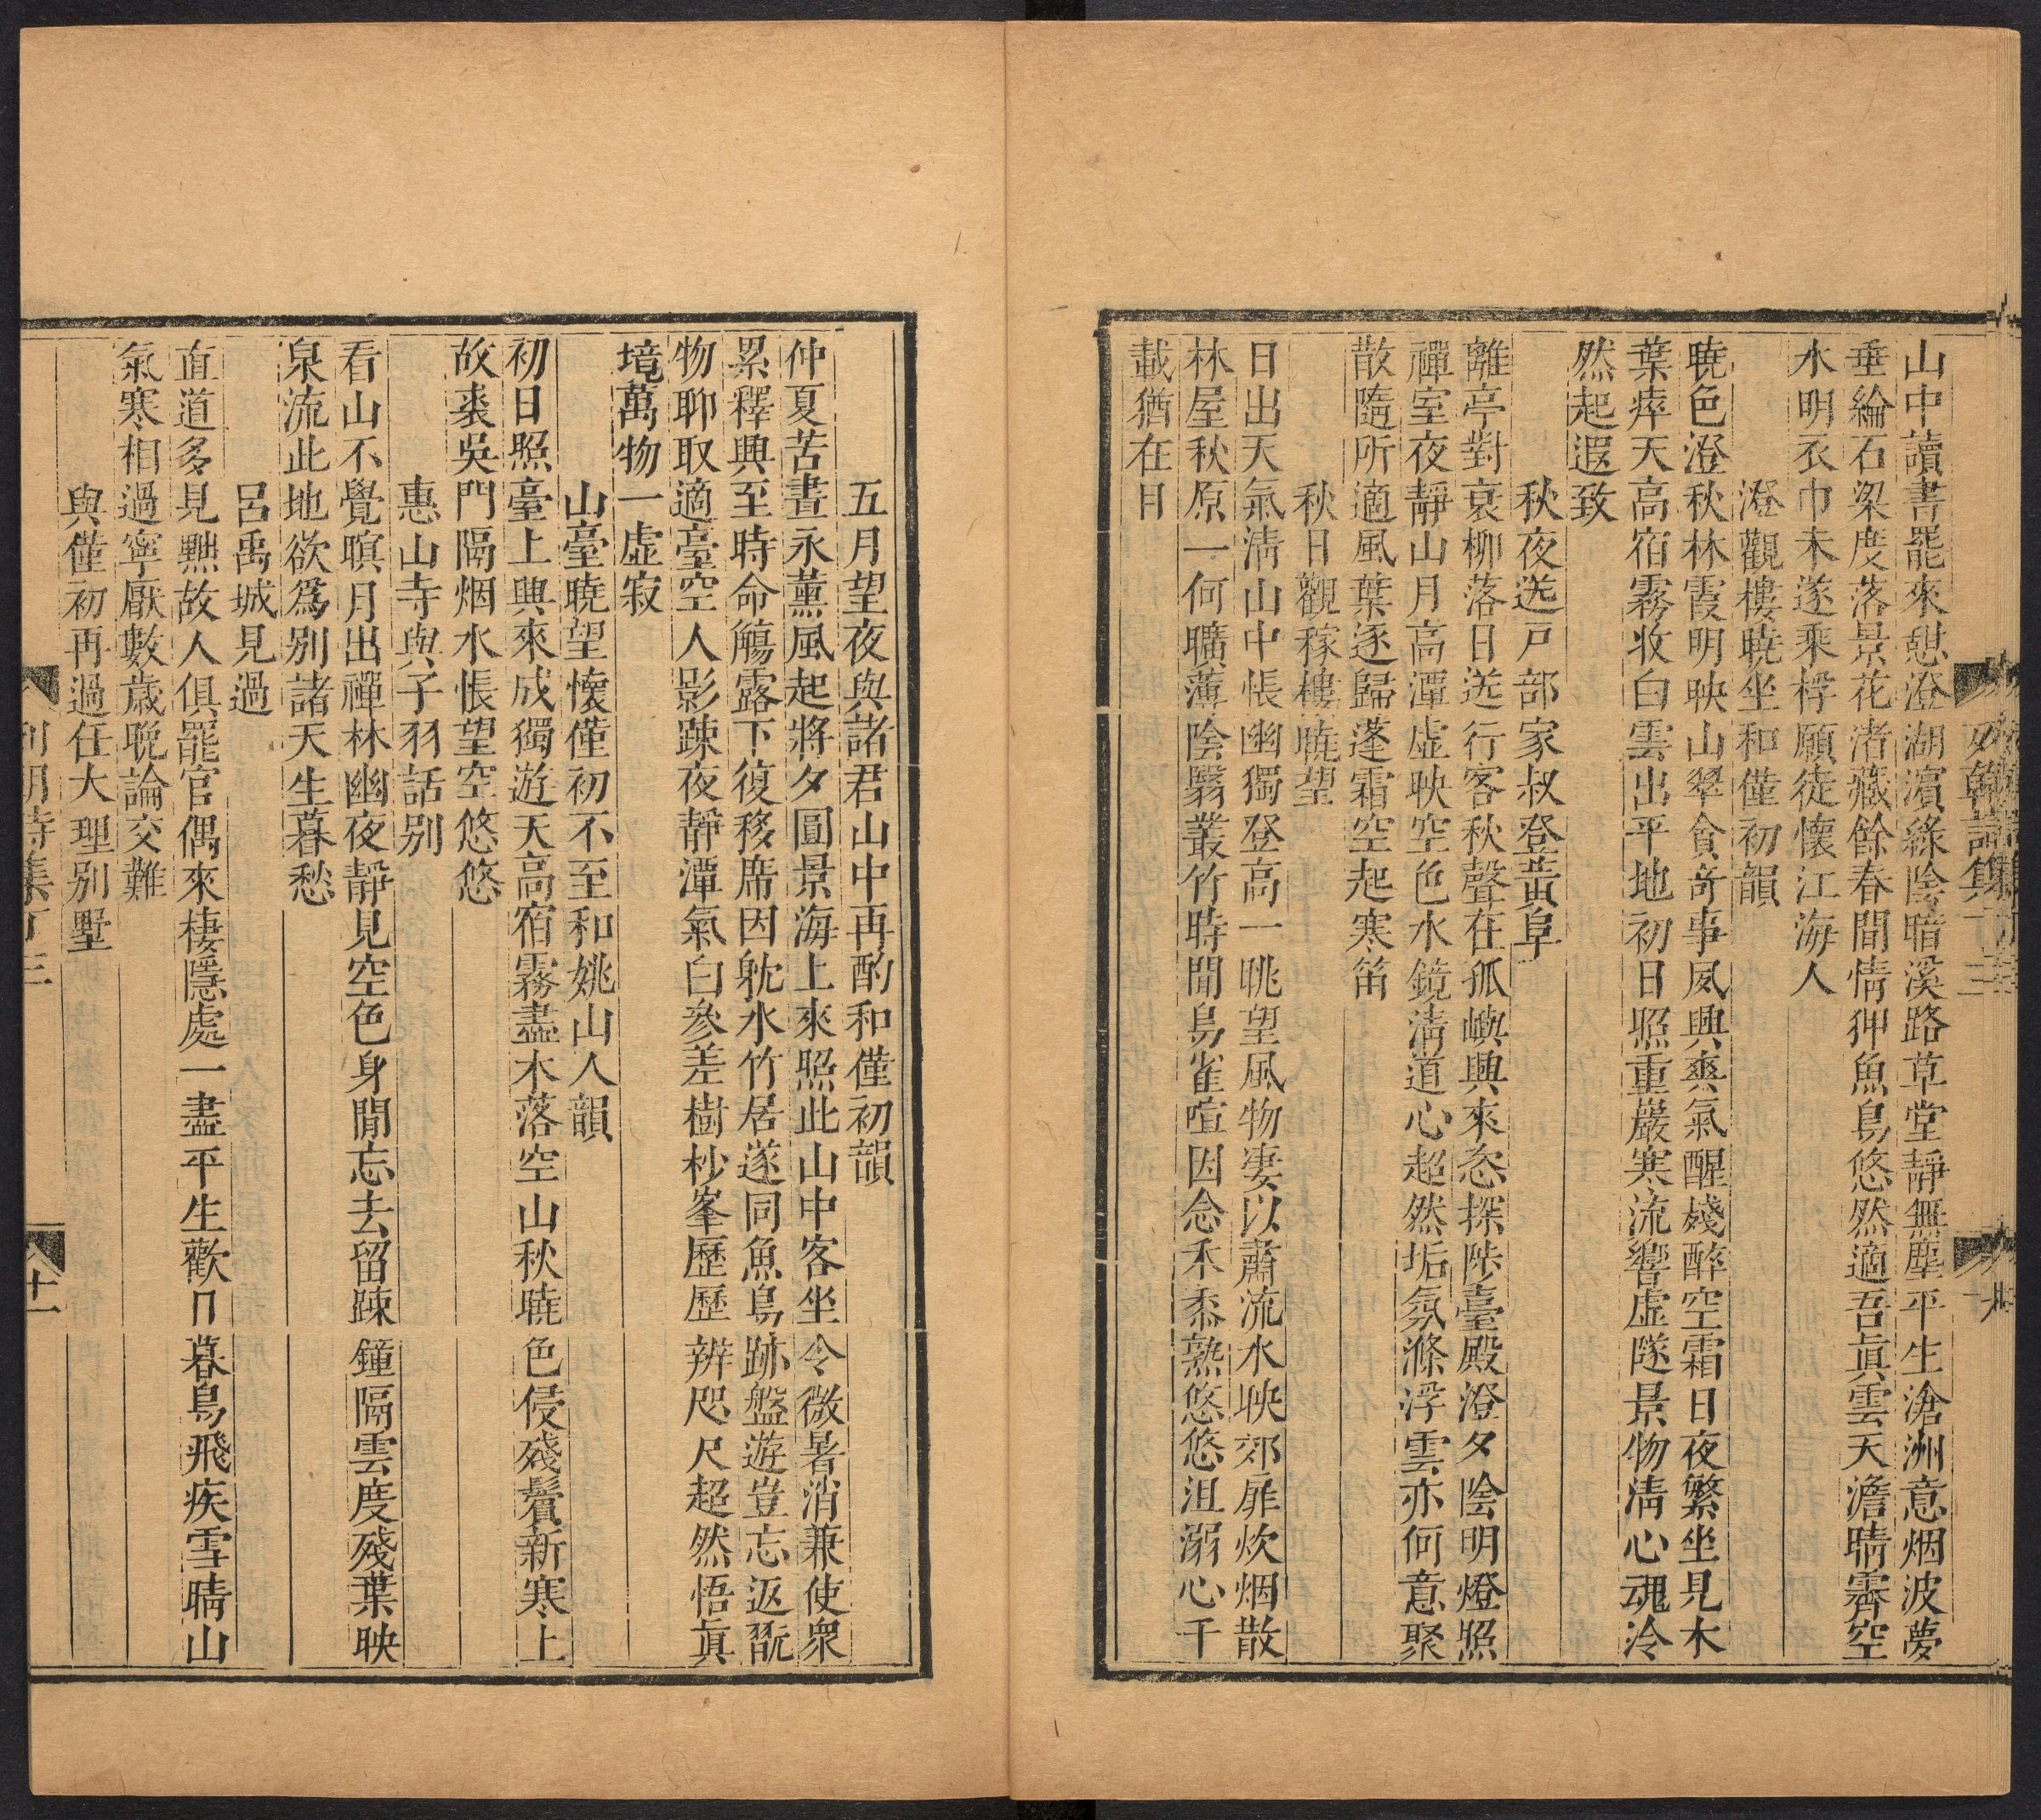 山中讀書罷來憩澄湖濵綠陰暗溪路草堂靜無塵平生滄洲意烟波夢
垂綸石梁度落景花渚藏餘春間情狎魚鳥悠然適吾眞雲天澹晴霽空
水明衣巾未遂乘桴願徒懷江海人
澄觀樓曉坐和僅初韻
曉色澄秋林霞明映山翠貪奇事夙興爽氣醒殘醉空霜日夜繁坐見木
葉瘁天高宿霧收白雲出平地初日照重巖寒流響虚隧景物淸心魂泠
然起遐致
秋夜送戸部家叔登黃阜
離亭對衰柳落日送行客秋聲在孤嶼興來恣探陟臺殿澄夕陰明燈照
禪室夜靜山月高潭虚映空色水鏡淸道心超然垢氛滌浮雲亦何意聚
散隨所適風葉逐歸蓬霜空起寒笛
秋日觀稼樓曉望
日出天氣淸山中悵幽獨登高一眺望風物凄以肅流水映郊扉炊烟散
林屋秋原一何曠薄陰翳叢竹時聞鳥雀喧因念禾黍熟悠悠沮溺心千
載猶在目
五月望夜與諸君山中再酌和僅初韻
仲夏苦晝永薰風起將夕圓景海上來照此山中客坐令微暑消兼使衆
累釋興至時命觴露下復移席因躭水竹居遂同魚鳥跡盤遊豈忘返翫
物聊取適臺空人影踈夜靜潭氣白參差樹杪峯歷歷辨咫尺超然悟眞
境萬物一虚寂
山臺曉望懷僅初不至和姚山人韻
初日照臺上興來成獨遊天高宿霧盡木落空山秋曉色侵殘鬢新寒上
故裘吳門隔烟水悵望空悠悠
惠山寺與子羽話别
看山不覺暝月出禪林幽夜靜見空色身閒忘去留踈鐘隔雲度殘葉映
泉流此地欲爲别諸天生暮愁
呂禹城見過
直道多見黜故人俱罷官偶來棲隱處一盡平生歡門暮鳥飛疾雪晴山
氣寒相過寧厭數歲晚論交難
與僅初再過任大理别墅
十一